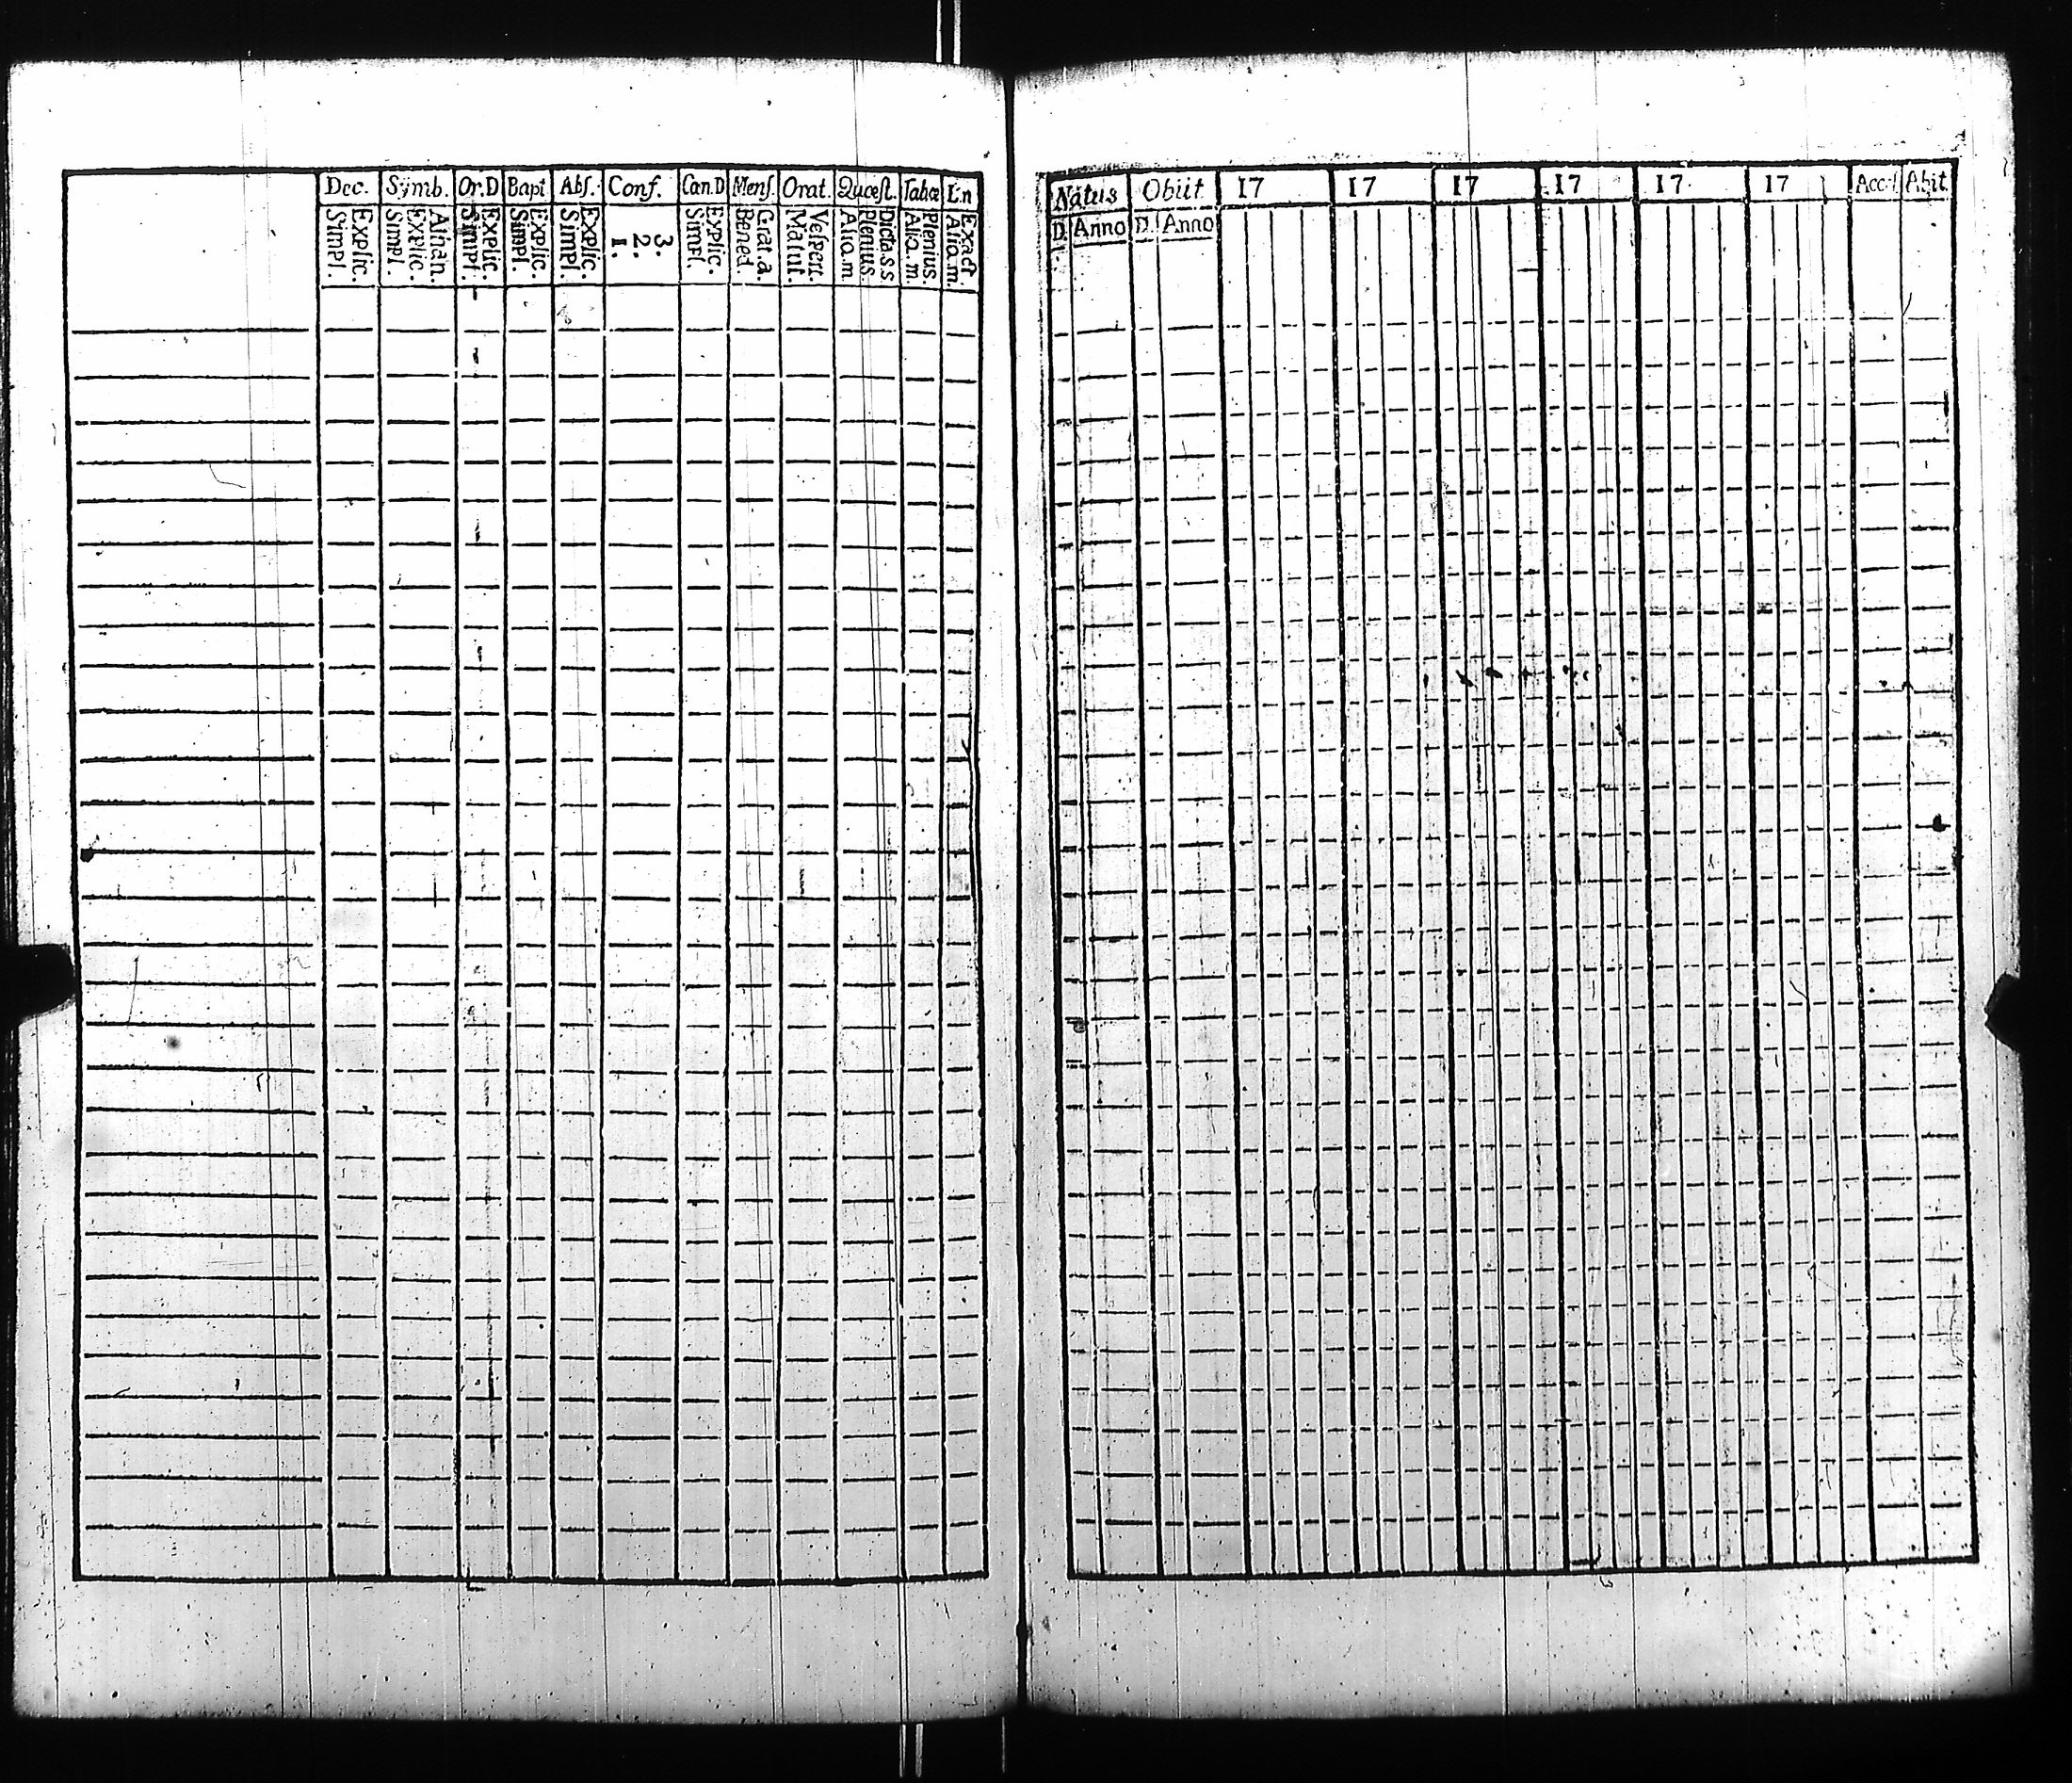 Dec. Symb. Or.D Bapt Abs. Conf. Can.D Mens. Orat. Quæst. Tabœ L.n
Explic. Simpl.
Athan. Explic. Simpl.
Explic. Simpl.
Explic. Simpl.
Explic. Simpl.
3. 2. 1.
Explic. Simpl.
Grat.a. Bened.
Vespert. Matut.
Dicta.s s Plenius. Alia.m
Plenius. Alia.m
Exact. Alia.m.
Natus Obiit 17 17 17 17 17 17 Acc. Abit
D. Anno D. Anno